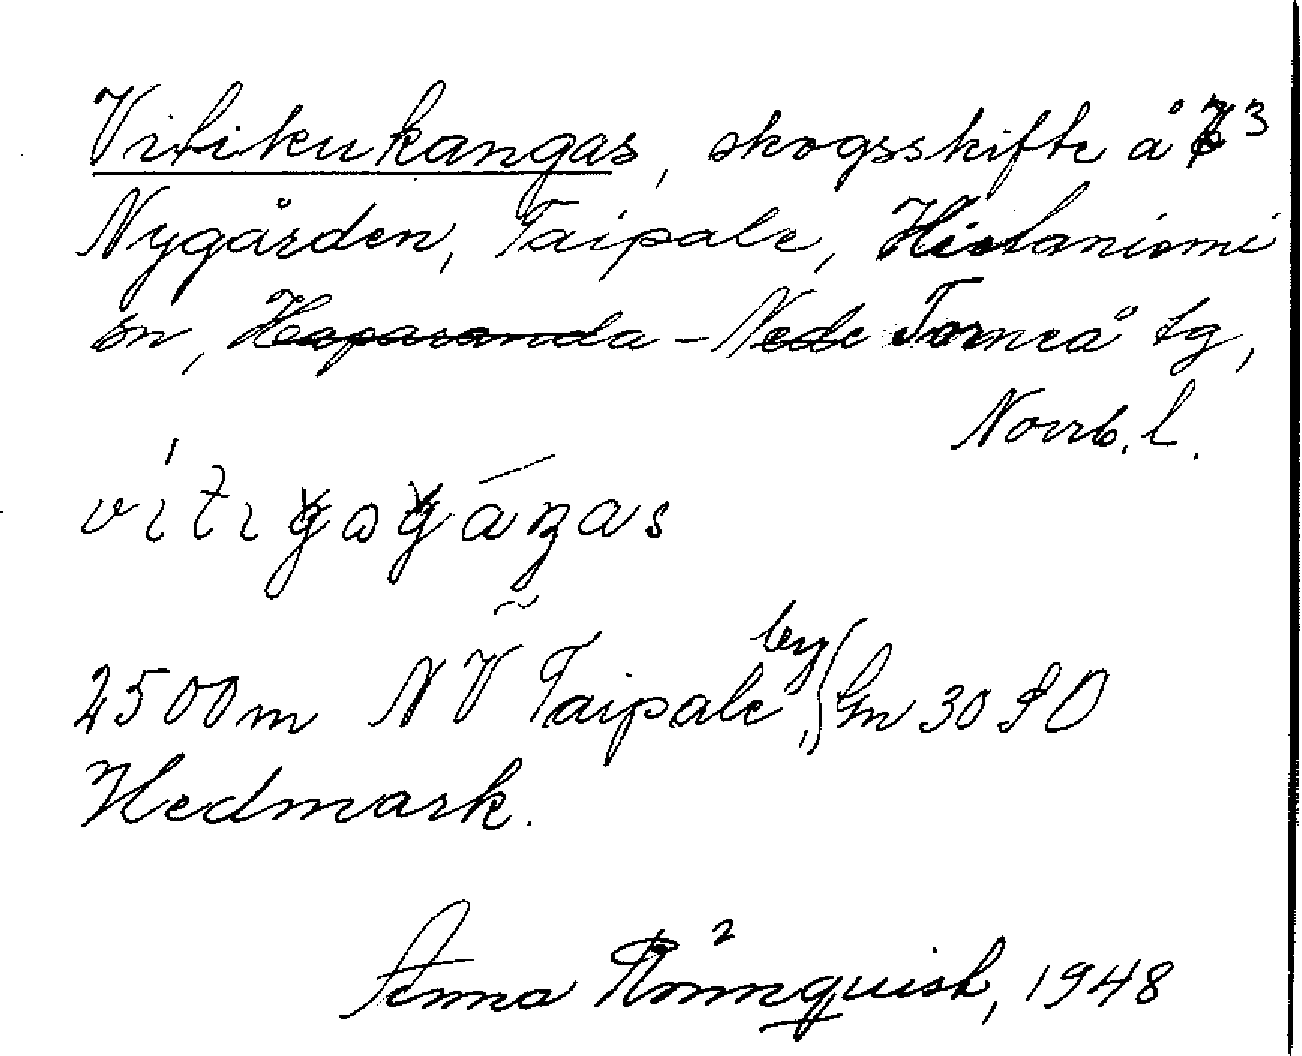 Vitikukangas, skogsskifte å 3
Nygården, Taipale, Hietaniemi
sn, Haparanda - Nede Torneå tg,
Norrb. l.
2500 m NV Taipale by, Gm 30 SO
Hedmark.
Anna Rönnquist, 1948